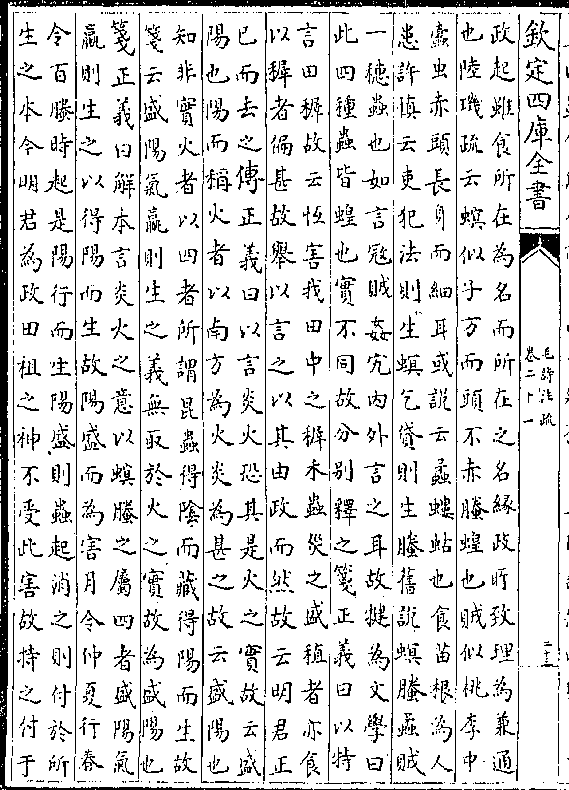 欽定四庫全書
毛詩注疏
卷二十一
政起雖食所在為名而所在之名緣政所致理為兼通
也陸璣疏云螟似子方而頭不赤螣蝗也賊似桃李中
蠹虫赤頭長身而細耳或說云蟊螻蛄也食苗根為人
患許慎云吏犯法則生螟乞貸則生螣舊說螟螣蟊賊
一穗蟲也如言寇賊姦宄内外言之耳故犍為文學曰
此四種蟲皆蝗也實不同故分别釋之箋正義曰以特
言田穉故云恒害我田中之穉禾蟲災之盛稙者亦食
以穉者偏甚故舉以言之以其由政而然故云明君正
已而去之傳正義曰以言炎火恐其是火之實故云盛
陽也陽而稱火者以南方為火炎為甚之故云盛陽也
知非實火者以四者所謂昆蟲得陰而藏得陽而生故
箋云盛陽氣贏則生之義無取於火之實故為盛陽也
箋正義曰解本言炎火之意以螟螣之屬四者盛陽氣
贏則生之以得陽而生故陽盛而為害月令仲夏行春
令百螣時起是陽行而生陽盛則蟲起消之則付於所
生之本今明君為政田祖之神不受此害故持之付于